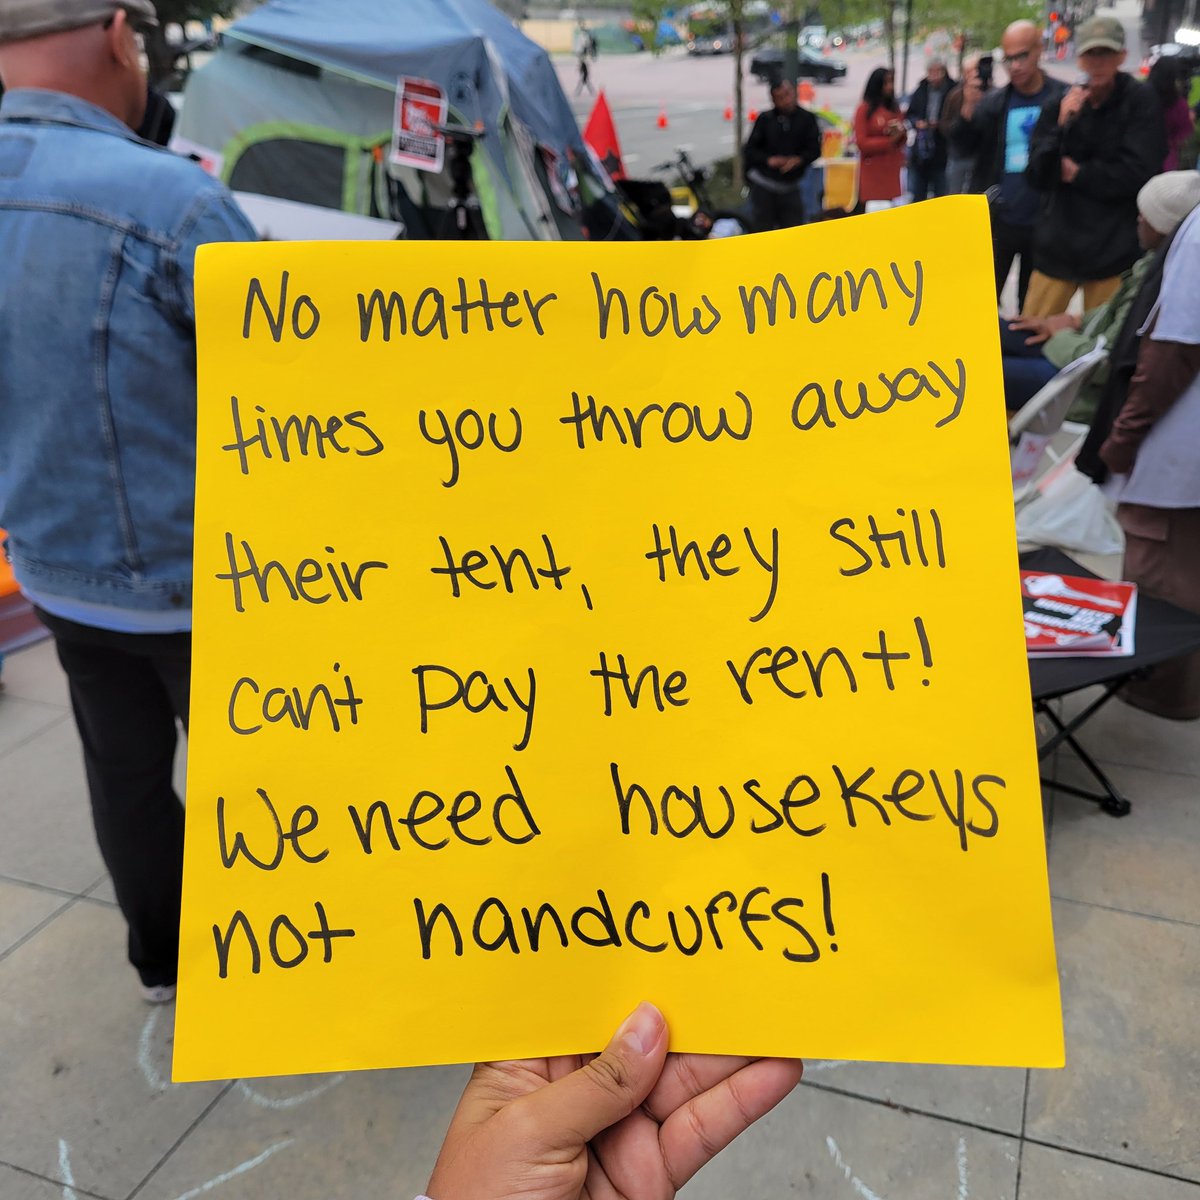 No matter how many
times you throw away
their tent, they still
can't pay the rent!
We need housekeys
not handcuffs!